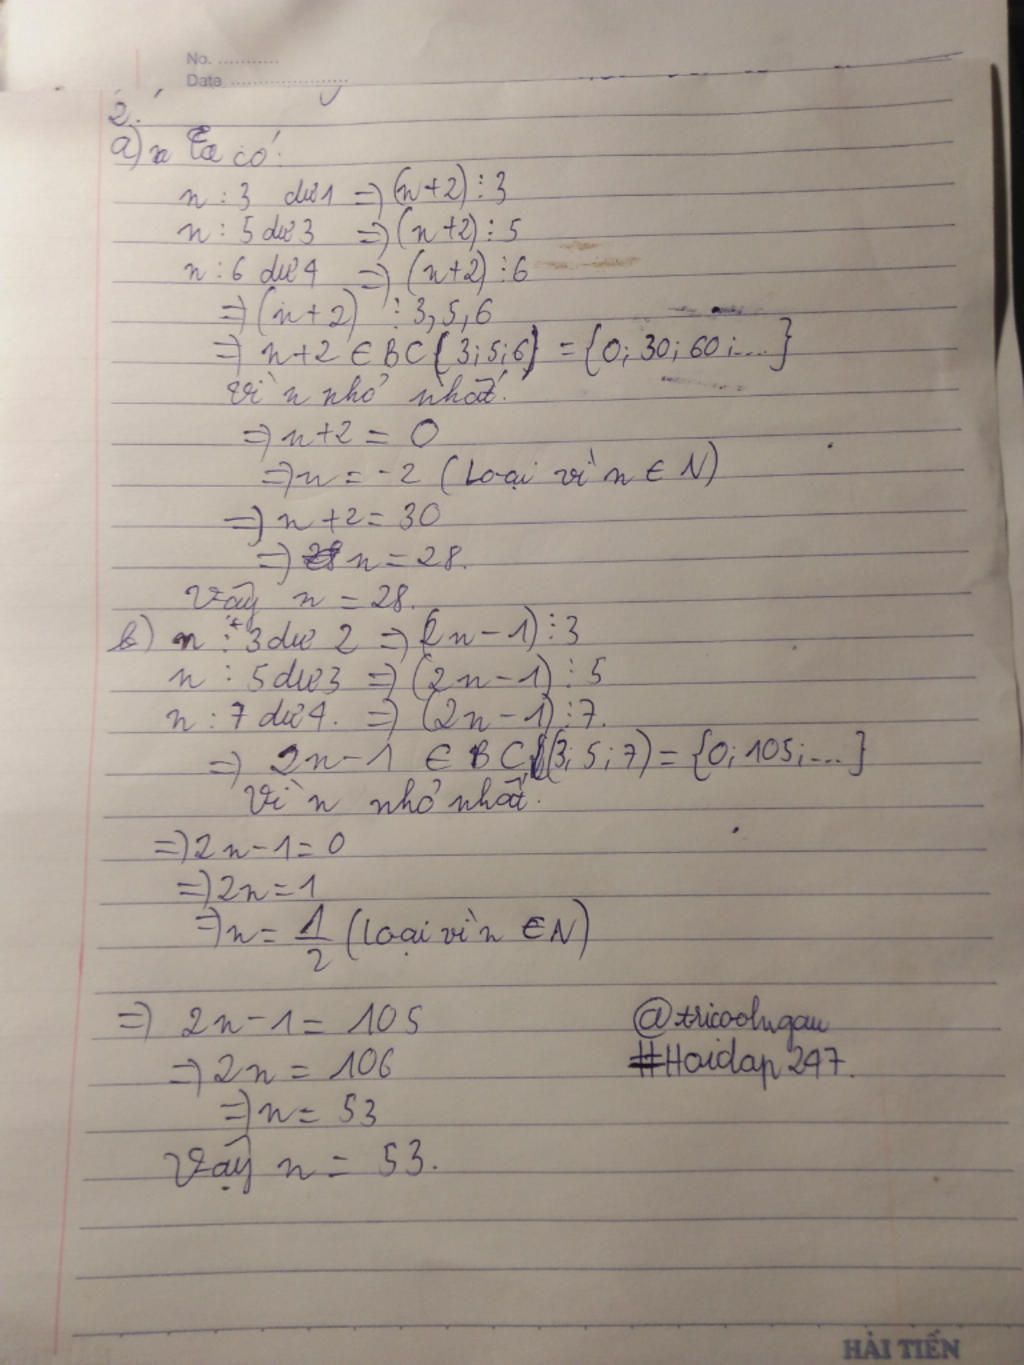 No. ............
Date ....................
2.
a) Ta có:
n : 3 dư 1 => (n+2) ⋮ 3
n : 5 dư 3 => (n+2) ⋮ 5
n : 6 dư 4 => (n+2) ⋮ 6
=> (n+2) ⋮ 3, 5, 6
=> n+2 ∈ BC(3; 5; 6) = {0; 30; 60; ...}
Vì n nhỏ nhất.
=> n+2 = 0
=> n = -2 (Loại vì n ∈ N)
=> n + 2 = 30
=> n = 28.
Vậy n = 28.
b) n : 3 dư 2 => (2n-1) ⋮ 3
n : 5 dư 3 => (2n-1) ⋮ 5
n : 7 dư 4. => (2n-1) ⋮ 7.
=> 2n-1 ∈ BC(3; 5; 7) = {0; 105; ...}
Vì n nhỏ nhất.
=> 2n-1 = 0
=> 2n = 1
=> n = 1/2 (Loại vì n ∈ N)
=> 2n-1 = 105
=> 2n = 106
=> n = 53
Vậy n = 53.
#Hoidap247.
HẢI TIẾN